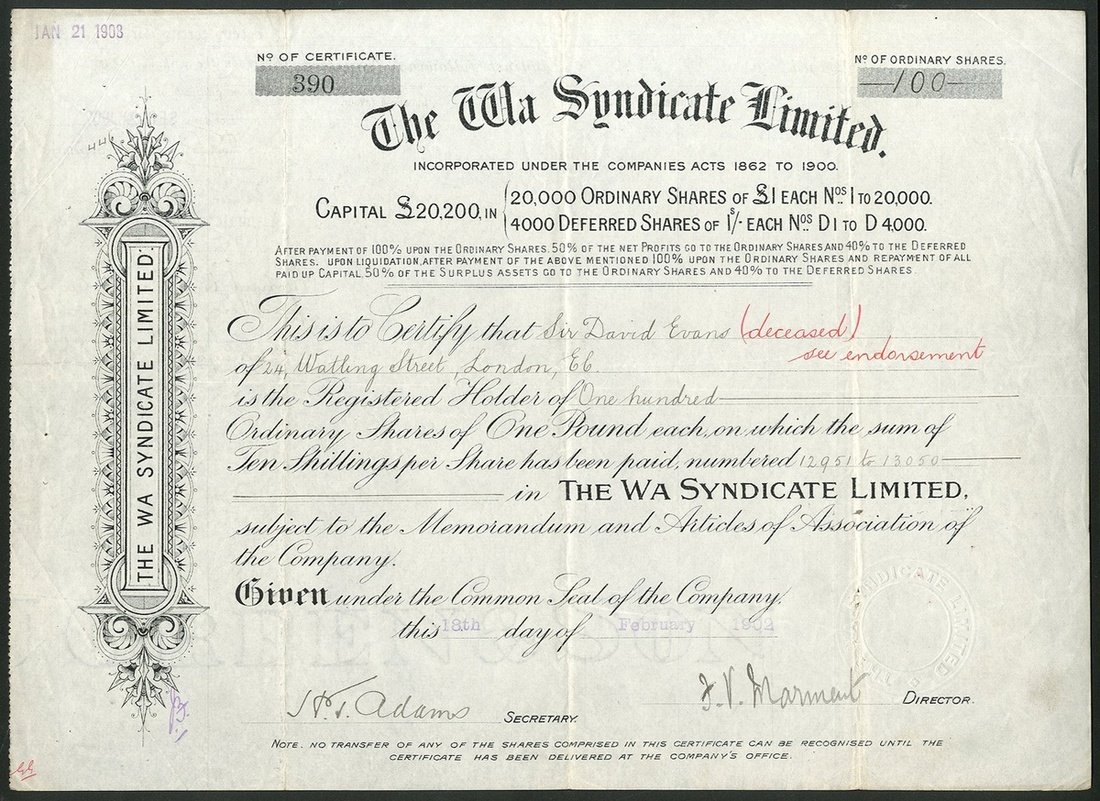 JAN 21 1903
No OF CERTIFICATE.
390
No OF ORDINARY SHARES.
100
446
The Wa Syndicate Limited.
INCORPORATED UNDER THE COMPANIES ACTS 1862 TO 1900.
CAPITAL £20,200, IN
20,000 ORDINARY SHARES OF £1 EACH Nos 1 TO 20,000.
4000 DEFERRED SHARES OF 1s/- EACH Nos D1 TO D 4,000.
AFTER PAYMENT OF 100% UPON THE ORDINARY SHARES. 50% OF THE NET PROFITS GO TO THE ORDINARY SHARES AND 40% TO THE DEFERRED
SHARES. UPON LIQUIDATION, AFTER PAYMENT OF THE ABOVE MENTIONED 100% UPON THE ORDINARY SHARES AND REPAYMENT OF ALL
PAID UP CAPITAL, 50% OF THE SURPLUS ASSETS GO TO THE ORDINARY SHARES AND 40% TO THE DEFERRED SHARES
THE WA SYNDICATE LIMITED.
This is to Certify that Sir David Evans (deceased)
see endorsement
of 24, Watling Street, London, E.C.
is the Registered Holder of One hundred
Ordinary Shares of One Pound each, on which the sum of
Ten Shillings per Share has been paid, numbered 12951 to 13050
in THE WA SYNDICATE LIMITED,
subject to the Memorandum and Articles of Association of
the Company.
Given under the Common Seal of the Company.
this 18th day of February 1902
H. T. Adams SECRETARY.
F. V. Marment DIRECTOR.
NOTE. NO TRANSFER OF ANY OF THE SHARES COMPRISED IN THIS CERTIFICATE CAN BE RECOGNISED UNTIL THE
CERTIFICATE HAS BEEN DELIVERED AT THE COMPANY'S OFFICE.